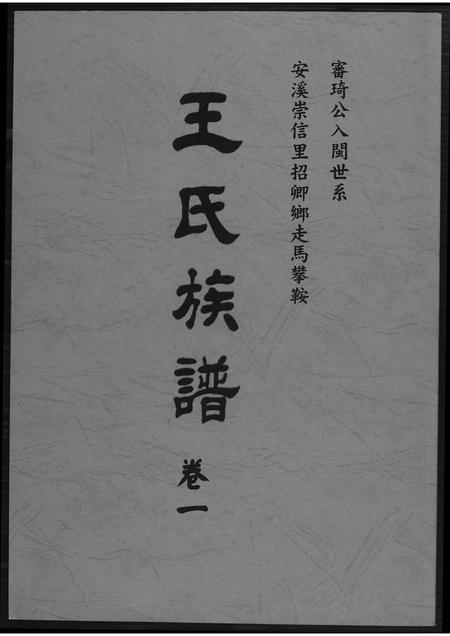 審琦公入閩世系
安溪崇信里招卿鄉走馬攀鞍
王氏族譜 卷一